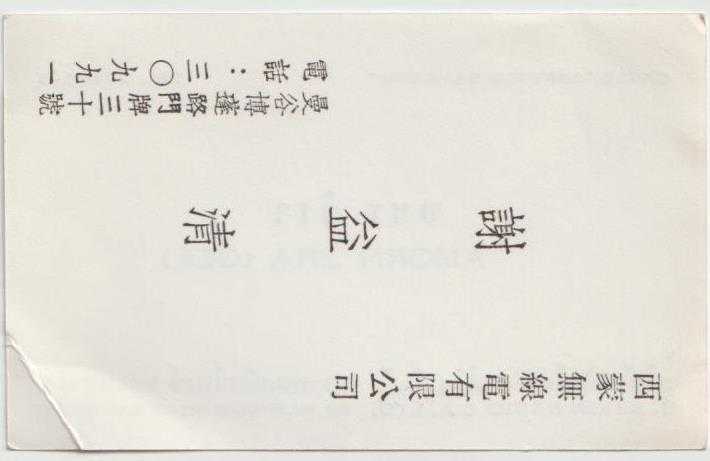 西蒙無線電有限公司
謝益清
曼谷博路門牌三十號
電話：三〇九九一